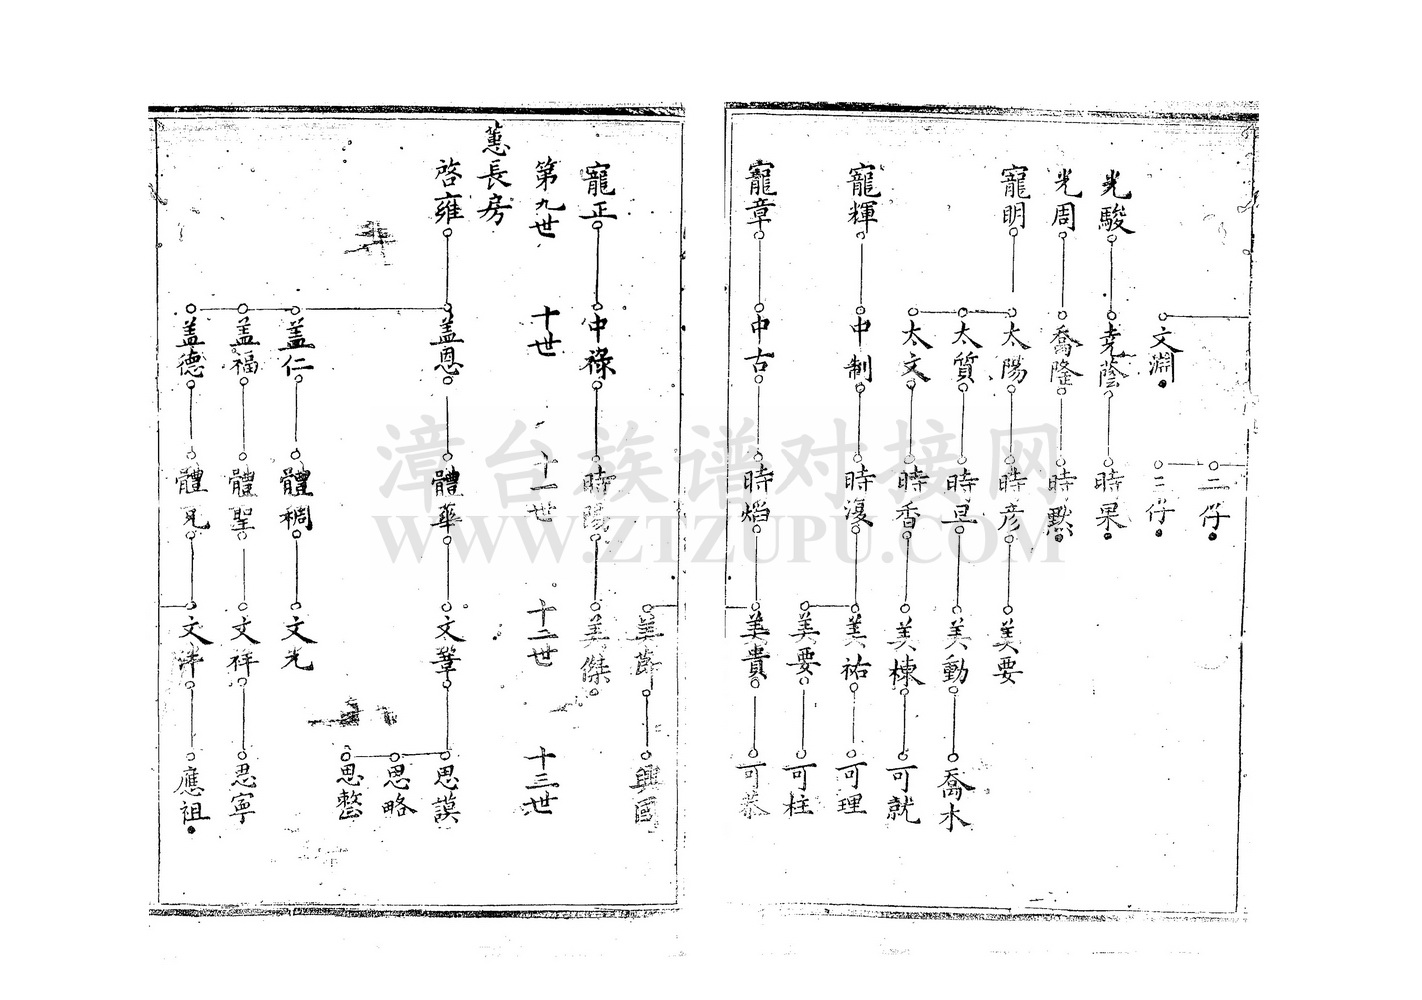 文淵
二仔
三仔
光駿
堯蔭
時果
光周
喬隆
時默
寵明
太陽
時彥
美要
太質
美動
喬木
太文
時香
美棟
可就
寵輝
中制
時復
美祐
可理
美要
可柱
寵章
中古
時焰
美貴
可恭
興國
寵正
中祿
時陽
美傑
第九世
十世
十一世
十二世
十三世
蕙長房
啓雍
盖恩
體華
文肇
思謨
思略
思整
盖仁
體稠
文光
盖福
體聖
文祥
思寧
盖德
文洋
應祖
漳台族谱对接网
WWW.ZTZUPU.COM